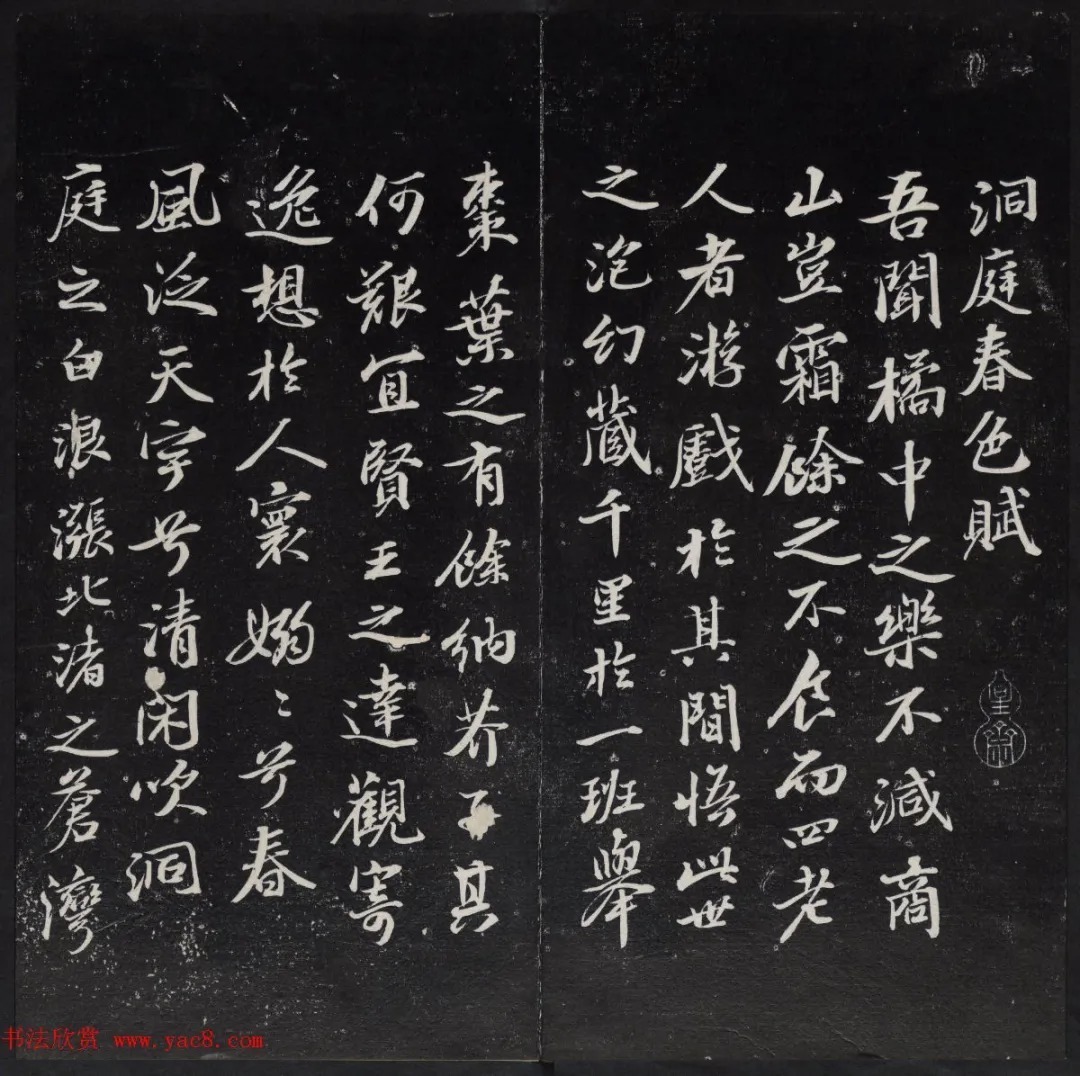 洞庭春色賦
吾聞橘中之樂不減商
山豈霜餘之不食而四老
人者游戲於其間悟此世
之泡幻藏千里於一班舉
棗葉之有餘納芥子其
何艱宜賢王之達觀寄
逸想於人寰嫋〻兮春
風泛天宇兮清閑吹洞
庭之白浪漲北渚之蒼灣
書法欣赏 www.yac8.com